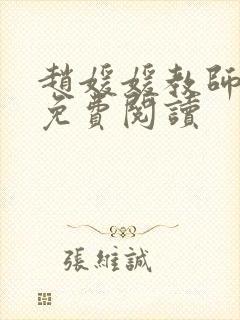 趙媛媛教師
免費閱讀
張維誠